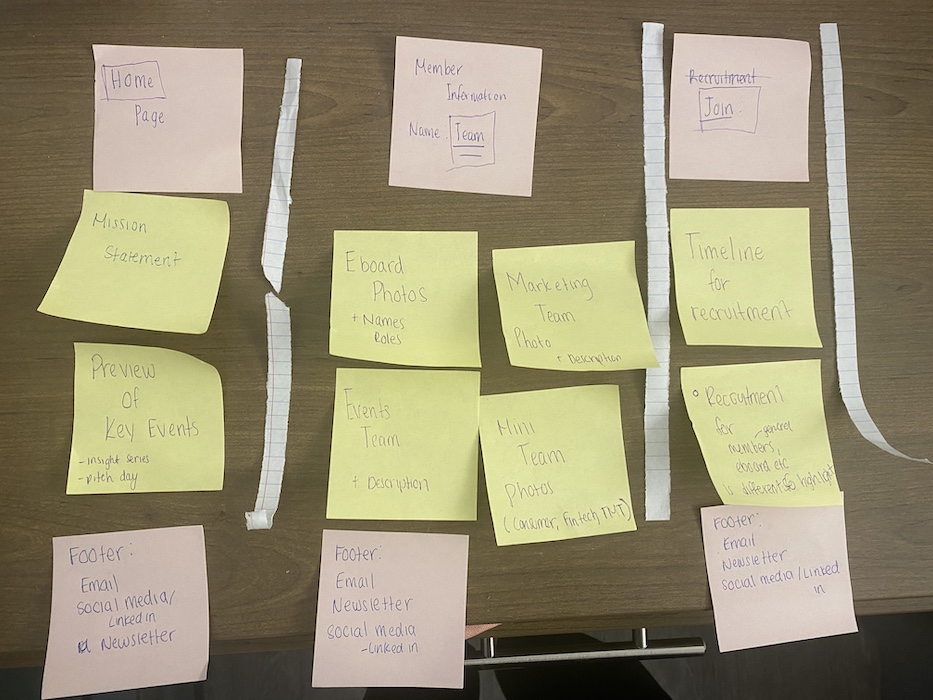 Home
Page
Mission
Statement
Preview
Of
Key Events
- insight series
- pitch day
Footer:
Email
Social media/
Linked in
Newsletter
Member
Information
Name Team
Eboard
Photos
+ Names
Roles
Marketing
Team
Photo
+ Description
Events
Team
+ Description
Mini
Team
Photos
(Consumer, Fintech, TMT)
Footer:
Email
Newsletter
Social media
- Linked in
Recruitment
Join
Timeline
for
recruitment
Recruitment
for - general
members,
eboard etc
is different so highlight
Footer:
Email
Newsletter
Social media / Linked
in